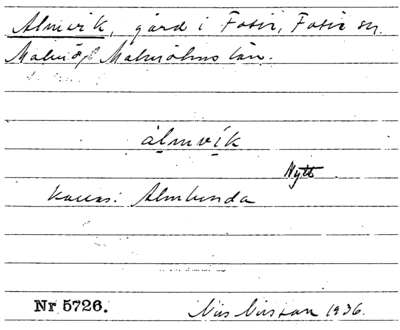 Almvik, gård i Fosie, Fosie sn.
Malmöhus län.
álmvík
Nytt
kallas: Almlunda
Nr 5726.
Nils Nilsson 1936.